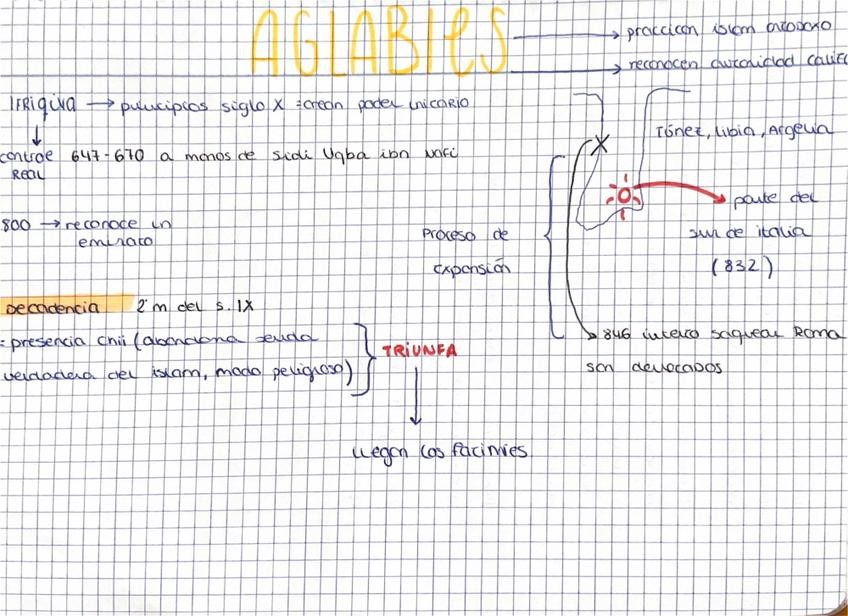 AGLABIES
→ practican islam ortodoxo
→ reconocen autoridad calif
IFRiqiya → principios siglo X = crean poder unitario
Túnez, Libia, Argelia
control 647-670 a manos de sidi Uqba ibn nafi
REAL
parte del
sur de italia
(832)
800 → reconoce un
emirato
Proceso de
expansión
Decadencia 2ªm del s. IX
= presencia chií (abandona senda
verdadera del islam, modo peligroso)
TRiUNFA
846 intento saquear Roma
son derrotados
llegan los fatimíes